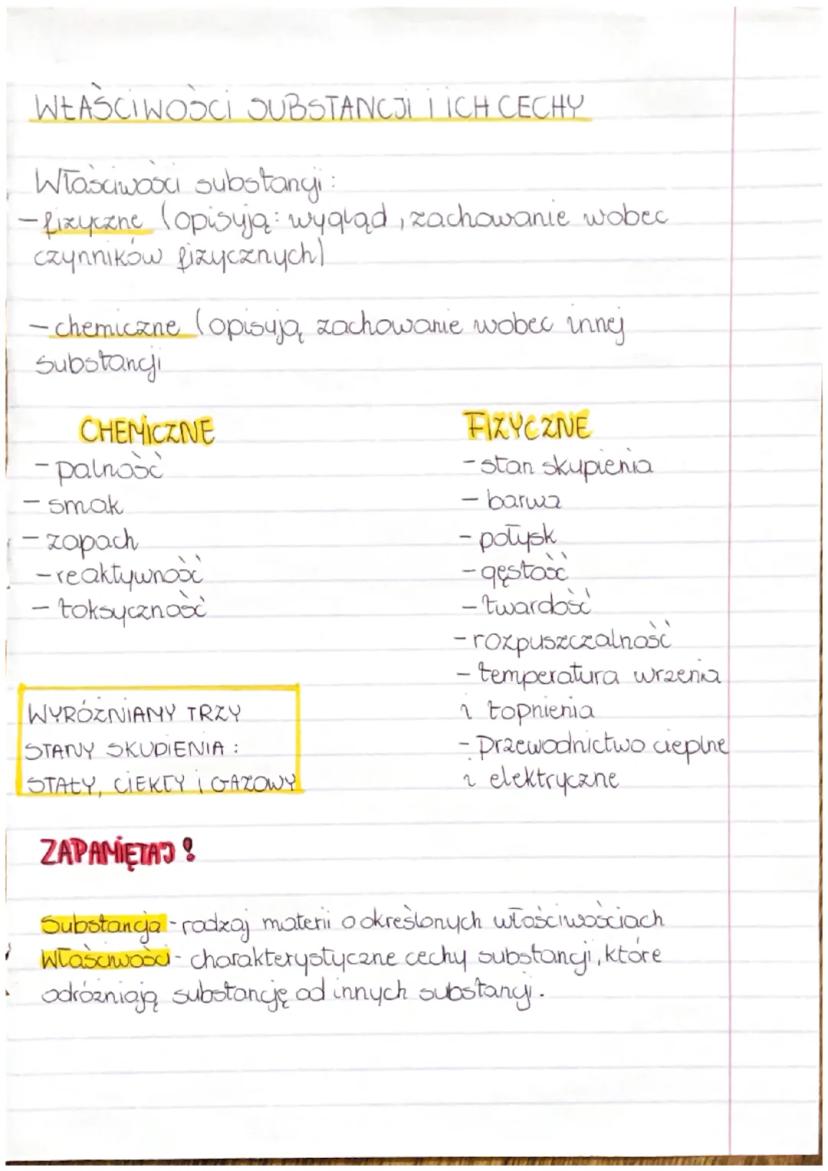 WŁAŚCIWOŚCI SUBSTANCJI I ICH CECHY
Właściwości substancji:
- fizyczne (opisują: wygląd, zachowanie wobec
czynników fizycznych)
- chemiczne (opisują zachowanie wobec innej
substancji
CHEMICZNE
- palność
- smak
- zapach
- reaktywność
- toksyczność
FIZYCZNE
- stan skupienia
- barwa
- połysk
- gęstość
- twardość
- rozpuszczalność
- temperatura wrzenia
i topnienia
- przewodnictwo cieplne
i elektryczne
WYRÓŻNIAMY TRZY
STANY SKUPIENIA:
STAŁY, CIEKŁY i GAZOWY
ZAPAMIĘTAJ!
Substancja - rodzaj materii o określonych właściwościach
Właściwości - charakterystyczne cechy substancji, które
odróżniają substancję od innych substancji.